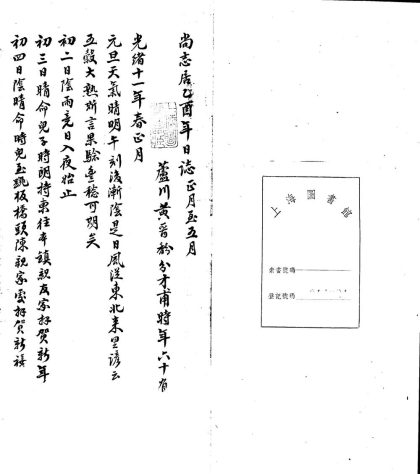 尚志居乙酉年日誌正月至五月
蘆川黃晉馚分才甫時年六十有
光緒十一年春正月
元旦天氣晴明午刻後漸陰是日風從東北來里諺云
五穀大熟斯言果驗豐稔可期矣
初二日陰雨竟日入夜始止
初三日晴命兒子時朗持柬往本鎮親友家拜賀新年
初四日陰晴命時兒至跳板橋頭陳親家處拜賀新禧
圖書館
索書號碼
登記號碼